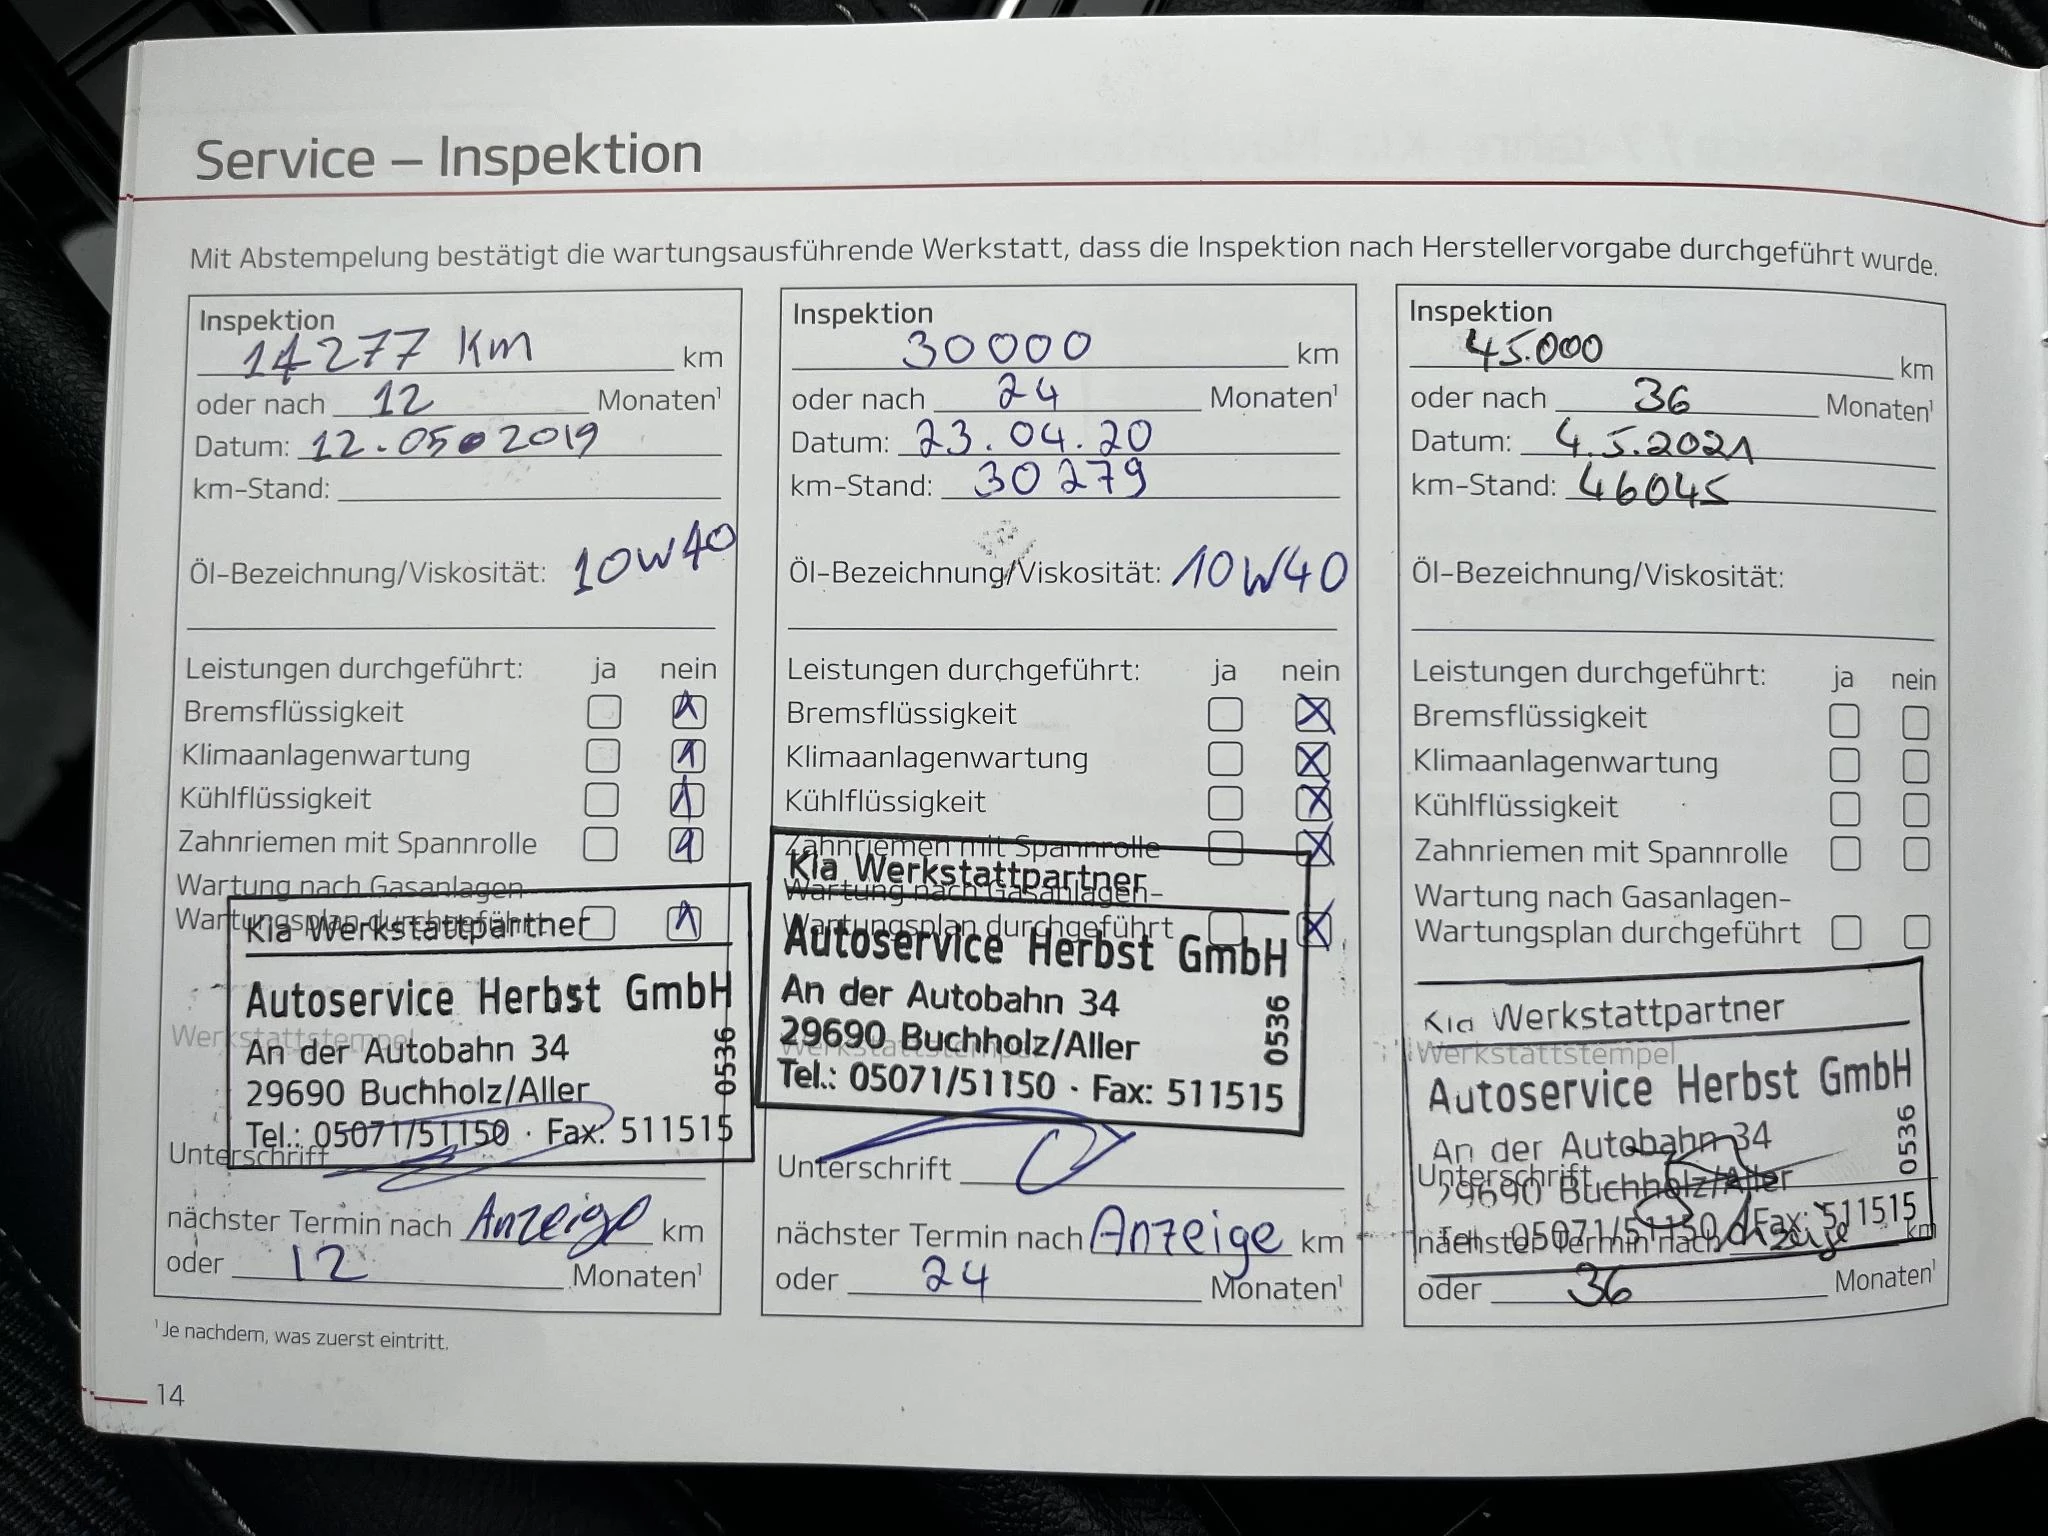 Service – Inspektion
Mit Abstempelung bestätigt die wartungsausführende Werkstatt, dass die Inspektion nach Herstellervorgabe durchgeführt wurde.
Inspektion
14277 Km km
oder nach 12 Monaten¹
Datum: 12.05.2019
km-Stand:
Öl-Bezeichnung/Viskosität: 10W40
Leistungen durchgeführt: ja nein
Bremsflüssigkeit
Klimaanlagenwartung
Kühlflüssigkeit
Zahnriemen mit Spannrolle
Wartung nach Gasanlagen-
Wartungsplan durchgeführt
Kia Werkstattpartner
Autoservice Herbst GmbH
Werkstattstempel
An der Autobahn 34
29690 Buchholz/Aller
0536
Tel.: 05071/51150 · Fax: 511515
Unterschrift
nächster Termin nach Anzeige km
oder 12 Monaten¹
Inspektion
30000 km
oder nach 24 Monaten¹
Datum: 23.04.20
km-Stand: 30279
Öl-Bezeichnung/Viskosität: 10W40
Leistungen durchgeführt: ja nein
Bremsflüssigkeit
Klimaanlagenwartung
Kühlflüssigkeit
Zahnriemen mit Spannrolle
Kia Werkstattpartner
Wartung nach Gasanlagen-
Wartungsplan durchgeführt
Autoservice Herbst GmbH
An der Autobahn 34
29690 Buchholz/Aller
Werkstattstempel
0536
Tel.: 05071/51150 · Fax: 511515
Unterschrift
nächster Termin nach Anzeige km
oder 24 Monaten¹
Inspektion
45.000 km
oder nach 36 Monaten¹
Datum: 4.5.2021
km-Stand: 46045
Öl-Bezeichnung/Viskosität:
Leistungen durchgeführt: ja nein
Bremsflüssigkeit
Klimaanlagenwartung
Kühlflüssigkeit
Zahnriemen mit Spannrolle
Wartung nach Gasanlagen-
Wartungsplan durchgeführt
Kia Werkstattpartner
Werkstattstempel
Autoservice Herbst GmbH
An der Autobahn 34
0536
Unterschrift
29690 Buchholz/Aller
Tel.: 05071/51150 · Fax: 511515
nächster Termin nach Anzeige km
oder 36 Monaten¹
¹ Je nachdem, was zuerst eintritt.
14